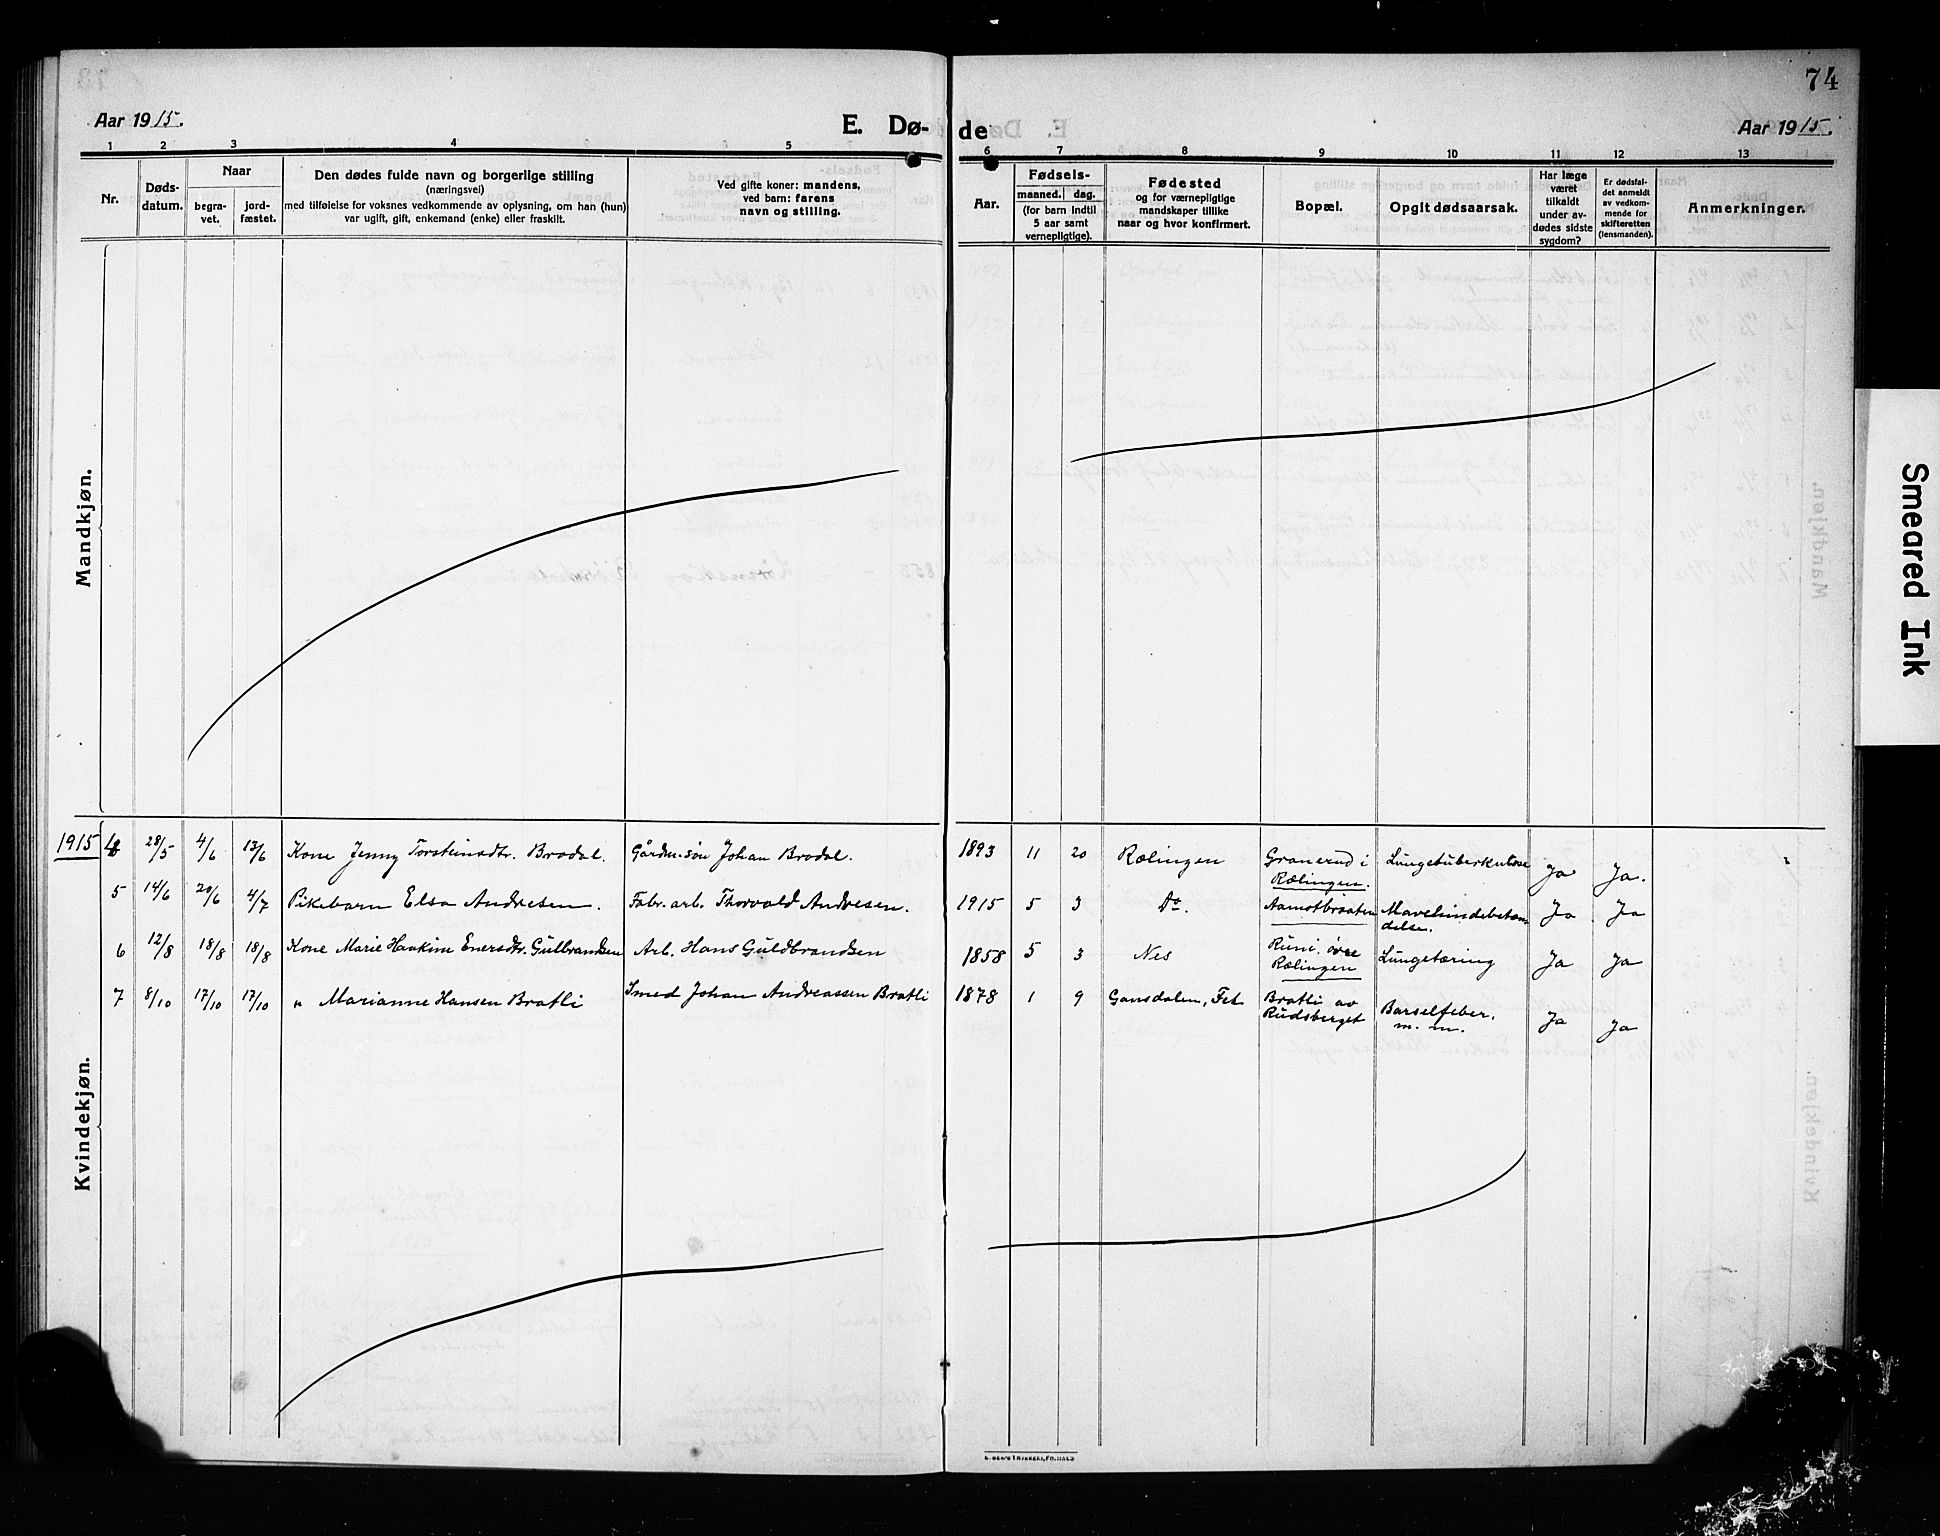 74
Aar 1915.
E. Dø-
de
Aar 1915.
1 2 3 4 5 6 7 8 9 10 11 12 13
Nr.
Døds-
datum.
Naar
begra-
vet.
jord-
fæstet.
Den dødes fulde navn og borgerlige stilling
(næringsvei)
med tilføielse for voksnes vedkommende av oplysning, om han (hun)
var ugift, gift, enkemand (enke) eller fraskilt.
Ved gifte koner: mandens,
ved barn: farens
navn og stilling.
Aar.
Fødsels-
maaned. dag.
(for barn indtil
5 aar samt
vernepligtige).
Fødested
og for værnepligtige
mandskaper tillike
naar og hvor konfirmert.
Bopæl.
Opgit dødsaarsak.
Har læge
været
tilkaldt
under av-
dødes sidste
sygdom?
Er dødsfal-
det anmeldt
av vedkom-
mende for
skifteretten
(lensmanden).
Anmerkninger.
Mandkjøn.
Kvindekjøn.
1915 4 28/5 4/6 13/6 Kone Jenny Torsteinsdtr. Brodal. Gårdm.søn Johan Brodal. 1893 11 20 Rælingen Granerud i Lungetuberkulose Ja Ja.
Rælingen.
5 14/6 20/6 4/7 Pikebarn Elsa Andresen. Fabr. arb. Thorvald Andresen. 1915 5 3 Do. Aamotbraaten Mavehindebetæn Ja Ja
delse.
6 12/8 18/8 18/8 Kone Marie Haakine Enersdtr. Gulbrandsen Arb. Hans Guldbrandsen 1858 5 3 Nes Runi. øvre Lungetæring Ja Ja
Rælingen
7 8/10 17/10 17/10 " Marianne Hansen Bratli Smed Johan Andreassen Bratli 1878 1 9 Gansdalen, Fet Bratli av Barselfeber. Ja Ja
Rudsberget m. m.
Smeared Ink